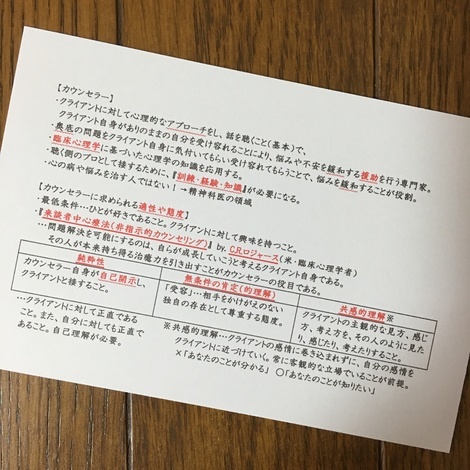 【カウンセラー】
・クライアントに対して心理的なアプローチをし、話を聴くこと(基本)で、
クライアント自身がありのままの自分を受け容れることにより、悩みや不安を緩和する援助を行う専門家。
・奥底の問題をクライアント自身に気付いてもらい受け容れてもらうことで、悩みを緩和することが役割。
・臨床心理学に基づいた心理学の知識を応用する。
・聴く側のプロとして接するために、『訓練・経験・知識』が必要になる。
・心の病や悩みを治す人ではない!→精神科医の領域
【カウンセラーに求められる適性や態度】
・最低条件…ひとが好きであること。クライアントに対して興味を持つこと。
・『来談者中心療法(非指示的カウンセリング)』by. C.R.ロジャース(米・臨床心理学者)
…問題解決を可能にするのは、自らが成長していこうと考えるクライアント自身である。
その人が本来持ち得る治癒力を引き出すことがカウンセラーの役目である。
純粋性
カウンセラー自身が自己開示し、
クライアントと接すること。
…クライアントに対して正直であ
ること。また、自分に対しても正直で
あること。自己理解が必要。
無条件の肯定(的理解)
「受容」…相手をかけがえのない
独自の存在として尊重する態度。
共感的理解※
クライアントの主観的な見方、感じ
方、考え方を、その人のように見た
り、感じたり、考えたりすること。
※共感的理解…クライアントの感情に巻き込まれずに、自分の感情を
クライアントに近づけていく。常に客観的な立場でいることが前提。
×「あなたのことが分かる」 ○「あなたのことが知りたい」